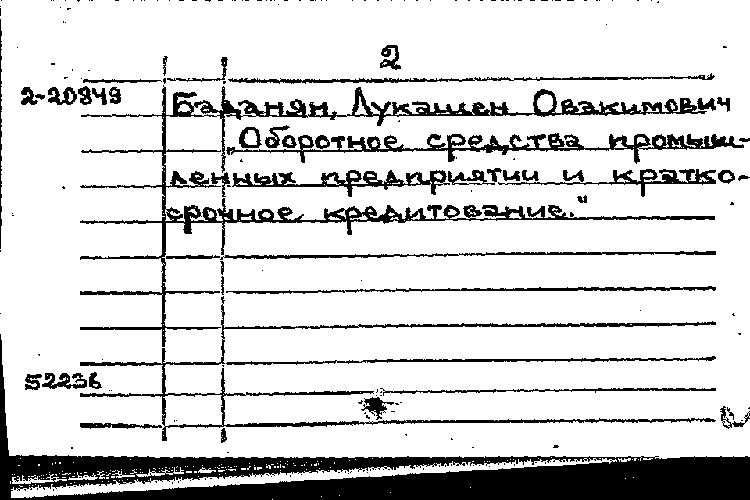 2
2-20849 Баданян, Лукашен Овакимович
„Оборотное средства промыш-
ленных предприятии и кратко-
срочное кредитование."
52236